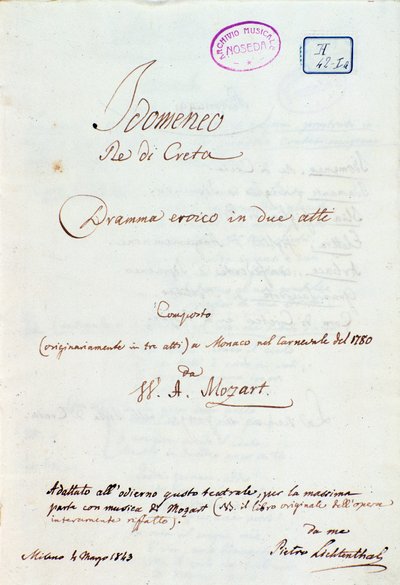 ARCHIVIO MUSICALE
NOSEDA
H
42-Ia
Idomeneo
Re di Creta
Dramma eroico in due atti
Composto
(originariamente in tre atti) a Monaco nel Carnevale del 1780
da
W. A. Mozart.
Adattato all'odierno gusto teatrale, per la massima
parte con musica di Mozart (NB. il libro originale dell'opera
interamente riffatto).
da me
Pietro Lichtenthal
Milano 4 Mago 1843